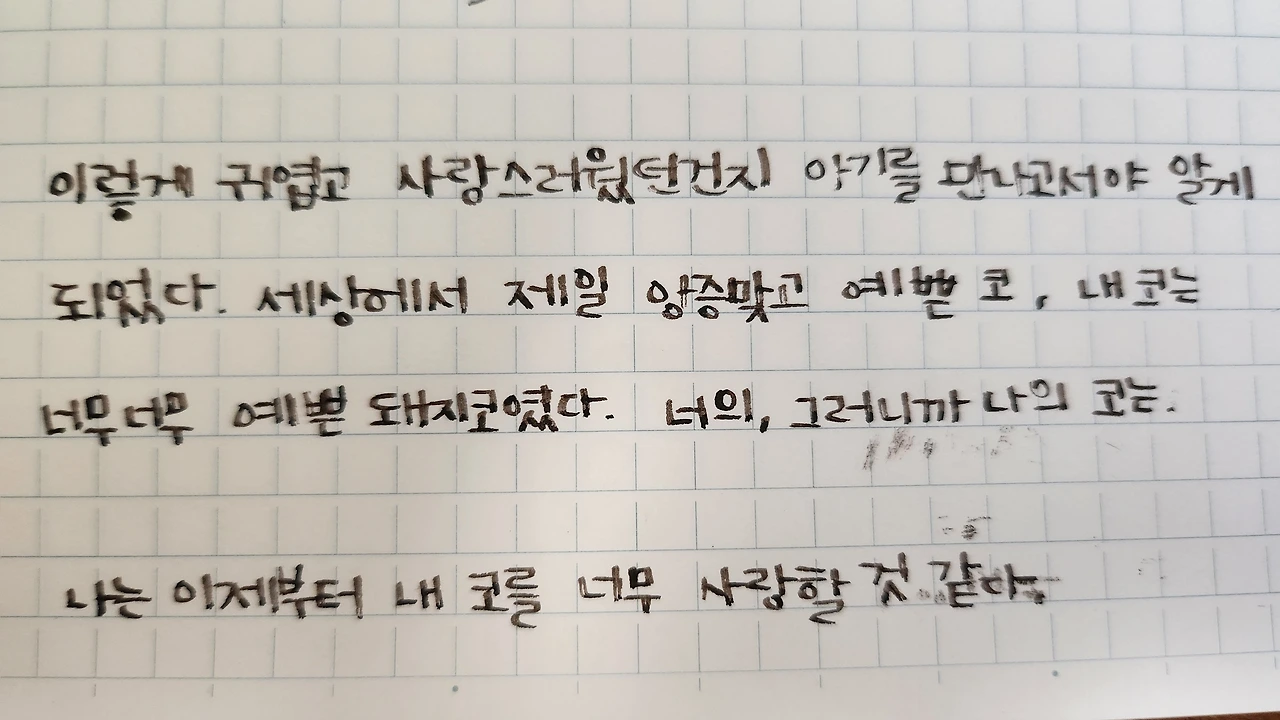 이렇게 귀엽고 사랑스러웠던건지 아기를 만나고서야 알게
되었다. 세상에서 제일 앙증맞고 예쁜 코, 내 코는
너무너무 예쁜 돼지코였다. 너의, 그러니까 나의 코는.
나는 이제부터 내 코를 너무 사랑할 것 같다.